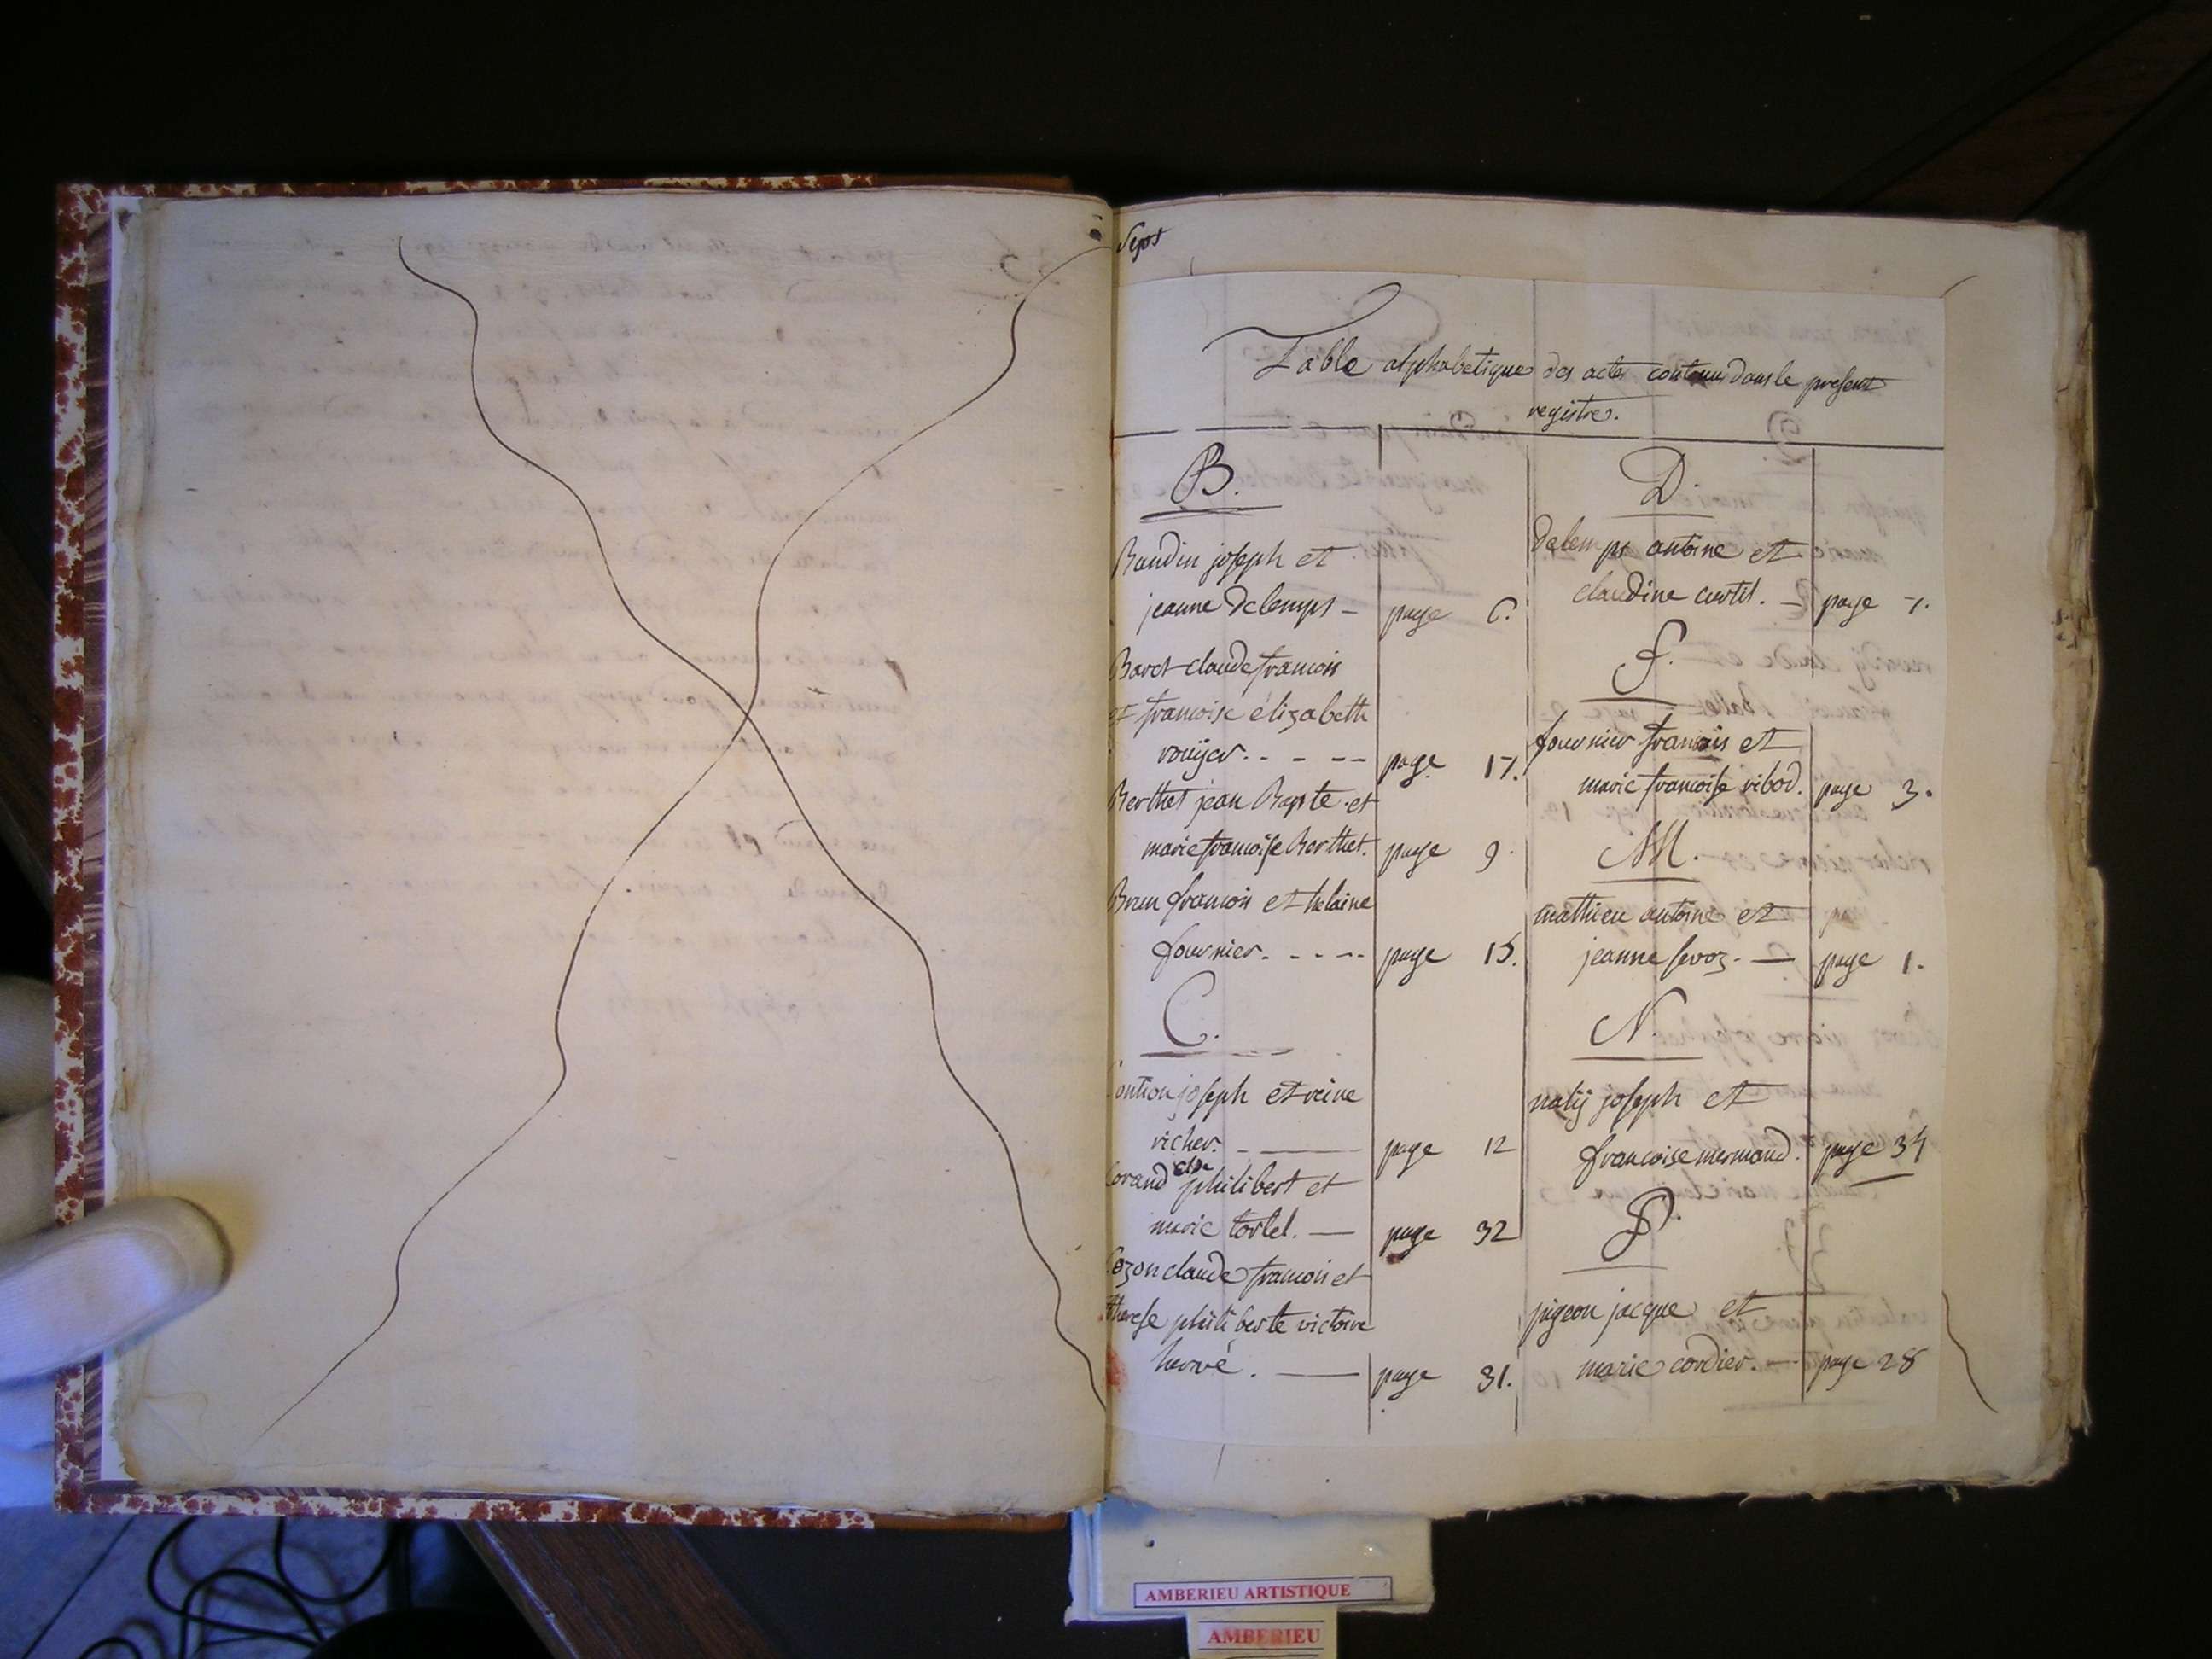 Sept
Table alphabetique des actes contenus dans le present
registre.
B.
Baudin joseph et
jeanne delemps - page 6.
Baret claude francois
et francoise élizabeth
rouyer. - - - - page 17.
Berthet jean Bapte et
marie francoise Berthet. page 9.
Brun francois et helaine
fournier. - - - - page 15.
C.
Contion joseph et reine
richer. - page 12
Corand cde philibert et
marie tortel. — page 32
Cozon claude francois et
therese philiberte victoire
hervé. — page 31.
D.
delemps antoine et
claudine curtil. — page 7.
F.
fournier francois et
marie francoise ribod. page 3.
M.
mathieu antoine et
jeanne sevoz. — page 1.
N.
naly joseph et
francoise mermand. page 34
P.
pigeon jacque et
marie cordier. — page 28
AMBERIEU ARTISTIQUE
AMBERIEU